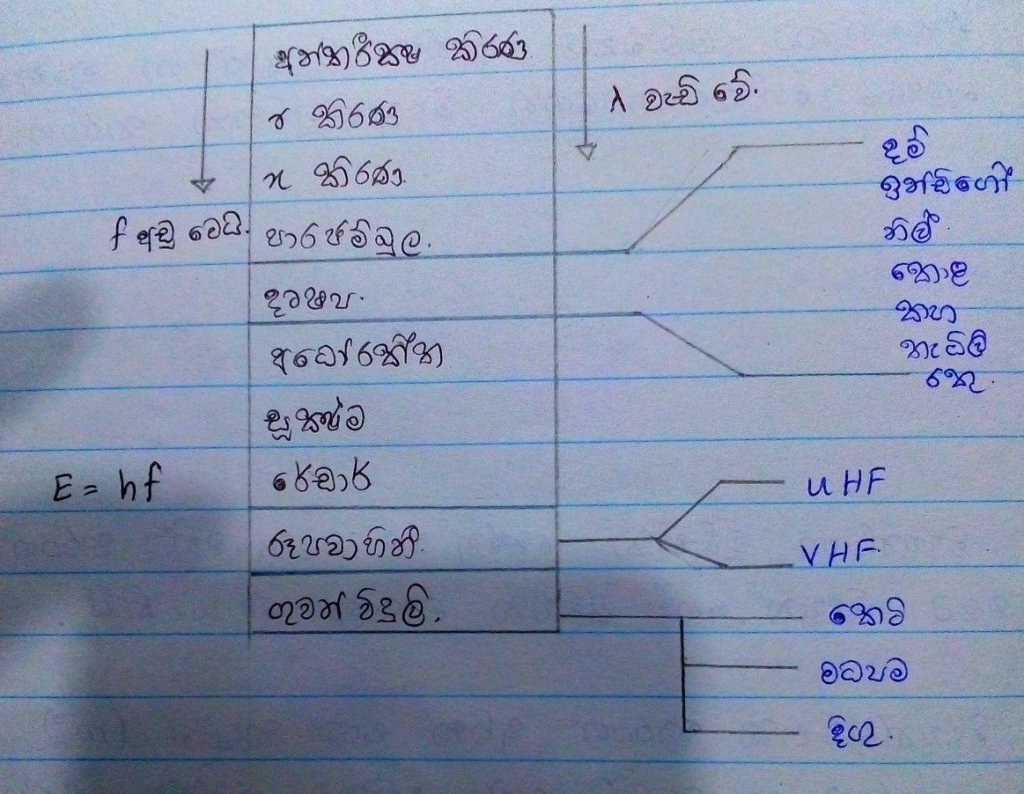 අන්තරීක්ෂ කිරණ
γ කිරණ
x කිරණ.
පාරජම්බුල.
දෘෂ්‍ය.
අධෝරක්ත
සූක්ෂම
රේඩාර්
රූපවාහිනී.
ගුවන් විදුලි.
f අඩු වෙයි.
E = hf
λ වැඩි වේ.
දම්
ඉන්ඩිගෝ
නිල්
කොළ
කහ
තැඹිලි
රතු.
UHF
VHF.
කෙටි
මධ්‍යම
දිගු.